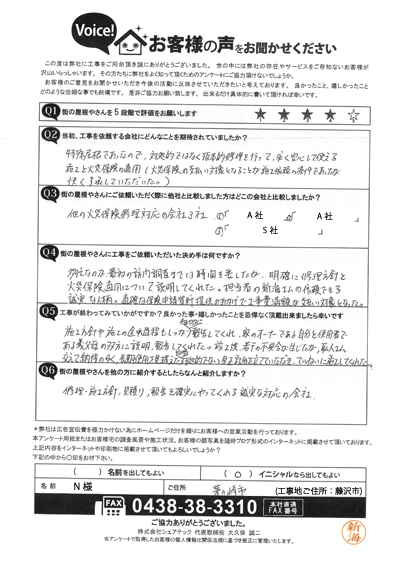 Voice!
お客様の声をお聞かせください
この度は弊社に工事をご用命頂き誠にありがとうございました。世の中には弊社の存在やサービスをご存知ないお客様が
沢山いらっしゃいます。その方たちに弊社をよく知って頂くためのアンケートにご協力頂けないでしょうか。
お客様のご意見をお聞かせいただき今後の活動に反映させていただきたいと考えております。良かったこと、嬉しかったこと
どのような些細な事でも結構です。是非ご協力お願い致します。出来るだけ具体的に書いて頂ければ幸いです。
Q1 街の屋根やさんを5段階で評価をお願いします ★ ★ ★ ★ ☆
Q2 当初、工事を依頼する会社にどんなことを期待されていましたか?
特殊屋根であったので、対処的ではなく抜本的修理を行って、永く安心して使える
施工と火災保険の適用(火災保険の支払い対象となることが施工依頼の条件であったが
快く了承していただいた。)
Q3 街の屋根やさんにご依頼いただく際に他社と比較しました方はどこの会社と比較しましたか?
他の火災保険修理対応の会社3社
A社
A社
S社
Q4 街の屋根やさんに工事をご依頼いただいた決め手は何ですか?
最初の訪問調査までは時間を要したが、明確に修理方針と
火災保険適用について説明してくれた。担当者の新海さんの信頼できる
誠実な人柄。
Q5 工事が終わってみていかがですか?良かった事・嬉しかったことを忌憚なくご記入頂けると幸いです
施工方針や施工の途中経過もしっかり報告してくれ、家のオーナーである自分と使用者で
ある義父母の双方に説明、報告してくれた。
Q6 街の屋根やさんを他の方に紹介するとしたらなんと紹介しますか?
修理・施工方針、見積り、報告を確実にやってくれる誠実な対応の会社。
*弊社は広告宣伝費を極力かけない為にホームページだけを頼りにお客様への営業活動を行っております。
本アンケート用紙またはお客様宅の調査風景や施工状況、お客様の顔写真を随時ブログ形式のインターネットに掲載させて頂いております。
上記内容をインターネットや印刷物に掲載させて頂いてもよろしいでしょうか?
下記の中から〇印をお付け下さい。
( )名前を出してもよい
( ○ )イニシャルなら出してもよい
名前 N様 ご住所 茅ヶ崎市 (工事地ご住所:藤沢市)
FAX 0438-38-3310 本社直通 FAX番号
ご協力ありがとうございました。
株式会社シェアテック 代表取締役 大久保 誠二
当アンケートで取得したお客様の個人情報は関係法規に基づき厳正に管理いたします。
新海